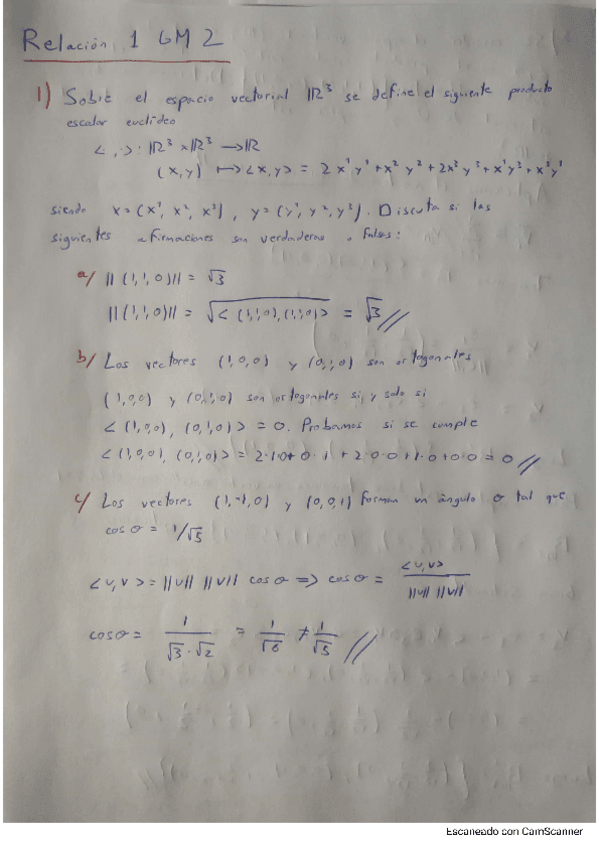 Relación 1 GM2
1) Sobre el espacio vectorial ℝ³ se define el siguiente producto
escalar euclídeo
< , > : ℝ³ × ℝ³ → ℝ
(x,y) ↦ <x,y> = 2x¹y¹+x²y²+2x³y³+x¹y³+x³y¹
siendo x=(x¹, x², x³), y=(y¹, y², y³). Discuta si las
siguientes afirmaciones son verdaderas o falsas:
a/ ||(1,1,0)|| = √3
||(1,1,0)|| = √<(1,1,0),(1,1,0)> = √3 //
b/ Los vectores (1,0,0) y (0,1,0) son ortogonales
(1,0,0) y (0,1,0) son ortogonales si, y solo si
<(1,0,0), (0,1,0)> = 0. Probamos si se cumple
<(1,0,0), (0,1,0)> = 2·1·0+0·1+2·0·0+1·0+0·0=0 //
c/ Los vectores (1,-1,0) y (0,0,1) forman un ángulo θ tal que
cos θ = 1/√5
<u,v> = ||u|| ||v|| cos θ ⟹ cos θ = <u,v> / ||u|| ||v||
cos θ = 1/√3·√2 = 1/√6 ≠ 1/√5 //
Escaneado con CamScanner